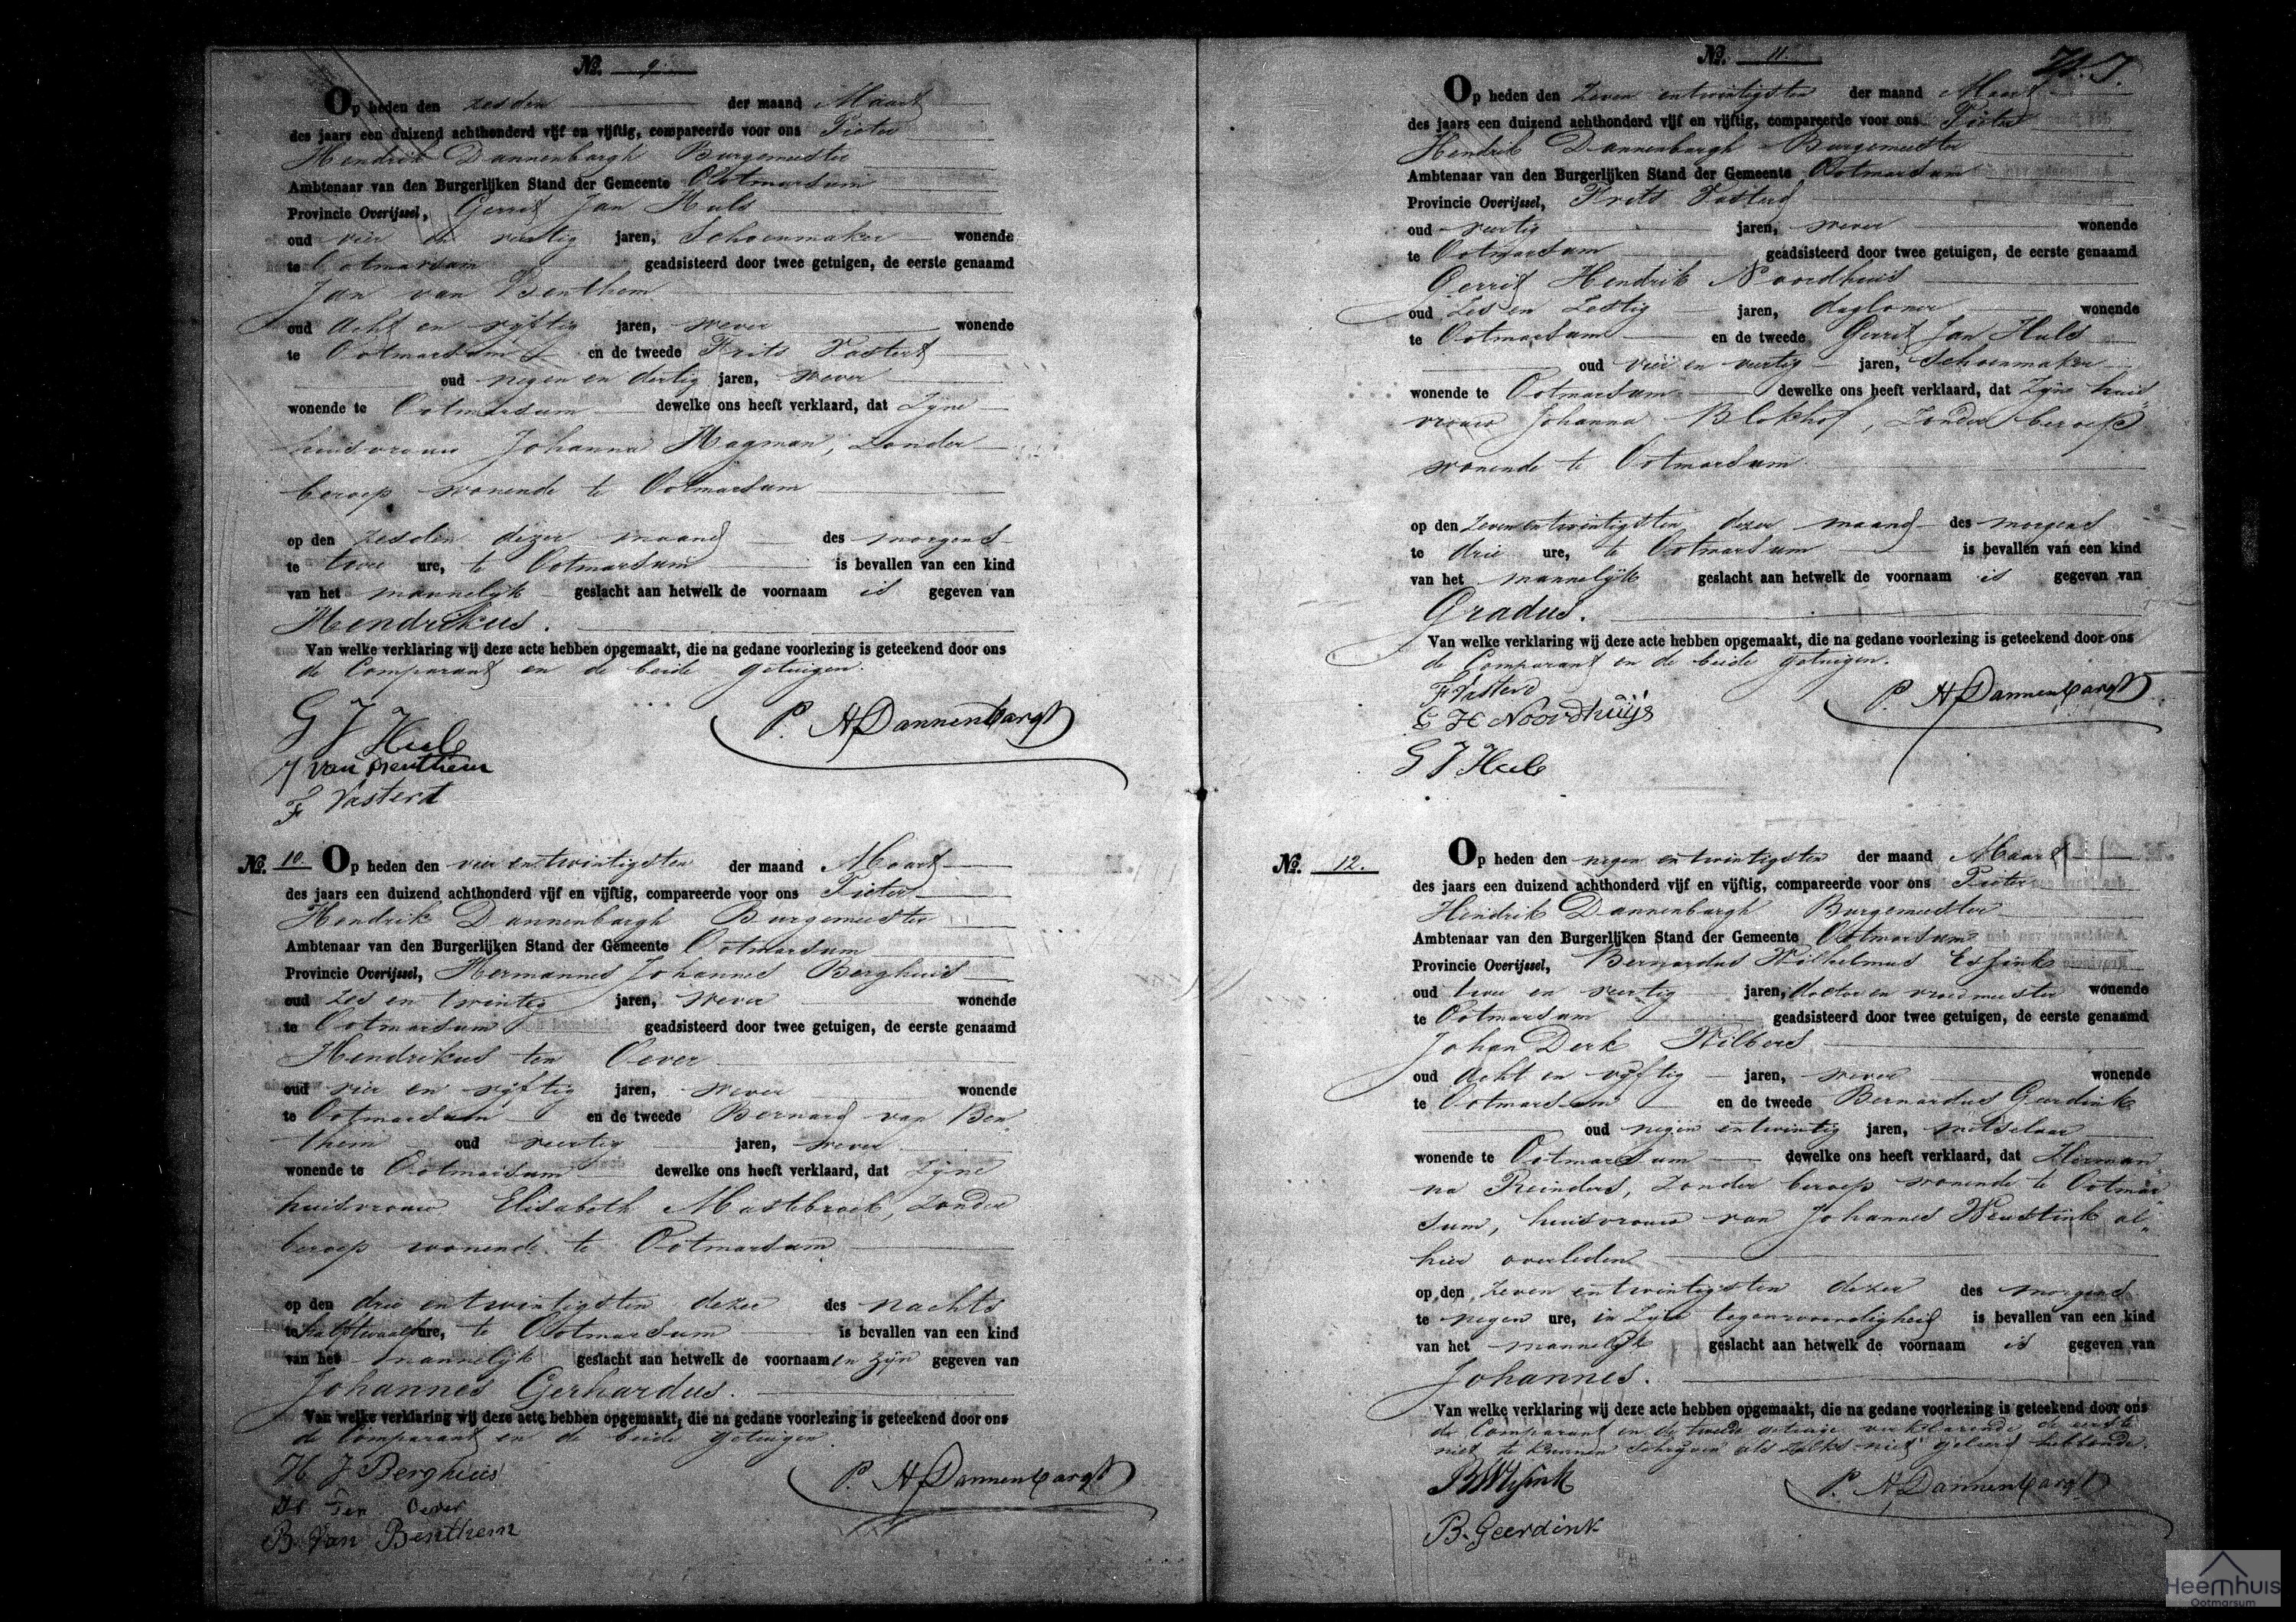 No. 9.
Op heden den zesden der maand Maart
des jaars een duizend achthonderd vijf en vijftig, compareerde voor ons Pieter
Hendrik Dannenbargh Burgemeester
Ambtenaar van den Burgerlijken Stand der Gemeente Ootmarsum
Provincie Overijssel, Gerrit Jan Huls
oud vier en veertig jaren, Schoenmaker wonende
te Ootmarsum geadsisteerd door twee getuigen, de eerste genaamd
Jan van Benthem
oud Acht en vijftig jaren, wever wonende
te Ootmarsum en de tweede Frits Vastert
oud negen en dertig jaren, wever
wonende te Ootmarsum dewelke ons heeft verklaard, dat zijne
huisvrouw Johanna Hagman, zonder
beroep wonende te Ootmarsum
op den zesden dezer maand des morgens
te twee ure, te Ootmarsum is bevallen van een kind
van het mannelijk geslacht aan hetwelk de voornaam is gegeven van
Hendrikus.
Van welke verklaring wij deze acte hebben opgemaakt, die na gedane voorlezing is geteekend door ons
de Comparant en de beide getuigen.
G J Huls
P. H Dannenbargh
J van Benthem
F Vastert
No. 10. Op heden den vier en twintigsten der maand Maart
des jaars een duizend achthonderd vijf en vijftig, compareerde voor ons Pieter
Hendrik Dannenbargh Burgemeester
Ambtenaar van den Burgerlijken Stand der Gemeente Ootmarsum
Provincie Overijssel, Hermannes Johannes Berghuis
oud zes en twintig jaren, wever wonende
te Ootmarsum geadsisteerd door twee getuigen, de eerste genaamd
Hendrikus ten Oever
oud vier en vijftig jaren, wever wonende
te Ootmarsum en de tweede Bernard van Ben
them oud veertig jaren, wever
wonende te Ootmarsum dewelke ons heeft verklaard, dat zijne
huisvrouw Elisabeth Mastebroek, zonder
beroep wonende te Ootmarsum
op den drie en twintigsten dezer des nachts
te half twaalf ure, te Ootmarsum is bevallen van een kind
van het mannelijk geslacht aan hetwelk de voornaam en zijn gegeven van
Johannes Gerhardus.
Van welke verklaring wij deze acte hebben opgemaakt, die na gedane voorlezing is geteekend door ons
de Comparant en de beide getuigen
H J Berghuis
P. H Dannenbargh
Ten Oever
B Van Benthem
No. 11.
Op heden den zeven en twintigsten der maand Maart
des jaars een duizend achthonderd vijf en vijftig, compareerde voor ons Pieter
Hendrik Dannenbargh Burgemeester
Ambtenaar van den Burgerlijken Stand der Gemeente Ootmarsum
Provincie Overijssel, Frits Vastert
oud veertig jaren, wever wonende
te Ootmarsum geadsisteerd door twee getuigen, de eerste genaamd
Gerrit Hendrik Noordhuis
oud zes en zestig jaren, dagloner wonende
te Ootmarsum en de tweede Gerrit Jan Huls
oud vier en veertig jaren, Schoenmaker
wonende te Ootmarsum dewelke ons heeft verklaard, dat zijne huis
vrouw Johanna Blokhof, zonder beroep
wonende te Ootmarsum
op den zeven en twintigsten dezer maand des morgens
te drie ure, te Ootmarsum is bevallen van een kind
van het mannelijk geslacht aan hetwelk de voornaam is gegeven van
Gradus.
Van welke verklaring wij deze acte hebben opgemaakt, die na gedane voorlezing is geteekend door ons
de Comparant en de beide getuigen.
F Vasterd
P. H Dannenbargh
G H Noordhuijs
G J Huls
No. 12. Op heden den negen en twintigsten der maand Maart
des jaars een duizend achthonderd vijf en vijftig, compareerde voor ons Pieter
Hendrik Dannenbargh Burgemeester
Ambtenaar van den Burgerlijken Stand der Gemeente Ootmarsum
Provincie Overijssel, Bernardus Wilhelmus Essink
oud twee en veertig jaren, doctor en vroedmeester wonende
te Ootmarsum geadsisteerd door twee getuigen, de eerste genaamd
Johan Derk Wilbers
oud Acht en vijftig jaren, wever wonende
te Ootmarsum en de tweede Bernardus Geerdink
oud negen en twintig jaren, metselaar
wonende te Ootmarsum dewelke ons heeft verklaard, dat Herman
na Reinders, zonder beroep wonende te Ootmar
sum, huisvrouw van Johannes Weustink al
hier overleden
op den zeven en twintigsten dezer des morgens
te negen ure, in zijne tegenwoordigheid is bevallen van een kind
van het mannelijk geslacht aan hetwelk de voornaam is gegeven van
Johannes.
Van welke verklaring wij deze acte hebben opgemaakt, die na gedane voorlezing is geteekend door ons
de Comparant en de tweede getuige verklarende de eerste
niet te kunnen schrijven als zulks niet geleerd hebbende.
BW Essink
P. H Dannenbargh
B. Geerdink
Heemhuis
Ootmarsum